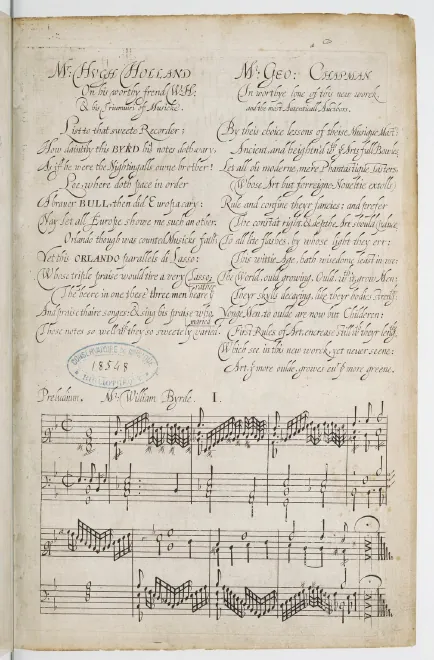 Mr. HUGH HOLLAND
On his worthy frend W.H.
& his Triumviri of Musicke.
List to that sweete Recorder;
How daintily this BYRD his notes doth vary,
As if he were the Nightingalls owne brother!
Loe, where doth pace in order
A braver BULL, then did Europa cary:
Nay let all Europe showe me such an other.
Orlando though was counted Musicks father;
Yet this ORLANDO parallels di Lasso:
Whose triple praise would tire a very Tasso;
Then heere in one these three men heare you rather
And praise thaire songes: & sing his praise who maried
Those notes so well wch they so sweetely varied.
Mr. GEO: CHAPMAN
In worthye love of this new work,
and the most Autenticall Aucthors.
By theis choice lessons of theise Musique Masters,
Ancient, and heightn'd wth ye Arts full Bowles,
Let all our moderne, mere Phantastique Tasters,
(Whose Art but forreigne Noveltie extolls)
Rule and confine theyr fancies; and prefer
The constant right, & depthe Art should produce,
To all lite flashes, by whose light they err;
This wittie Age, hath wisedome least in use;
The World, ould growing, Ould, wth it, grow Men;
Theyr skylls decaying, like theyr bodies strength;
Yonge Men, to oulde are now but Childeren:
First Rules of Art, encrease still wth theyr lenghth.
Which see in this new work, yet never seene:
Art, ye more oulde, growes evr ye more greene.
18548
Preludium. Mr. William Byrde. I.